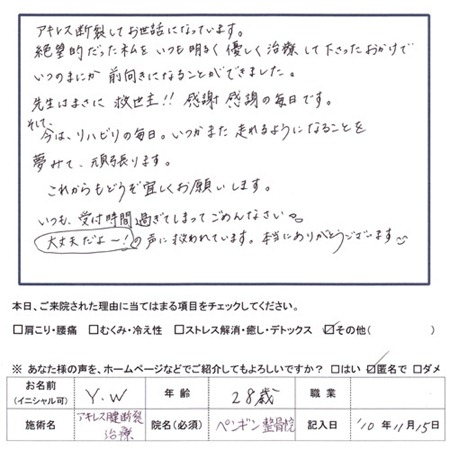 アキレス断裂してお世話になっています。
絶望的だった私をいつも明るく優しく治療して下さったおかげで
いつのまにか前向きになることができました。
先生はまさに救世主!! 感謝感謝の毎日です。
そして、
今は、リハビリの毎日。いつかまた走れるようになることを
夢みて、頑張ります。
これからもどうぞ宜しくお願いします。
いつも、受付時間過ぎてしまってごめんなさい
大丈夫だよ〜!の声に救われています。本当にありがとうございます
本日、ご来院された理由に当てはまる項目をチェックしてください。
□肩こり・腰痛 □むくみ・冷え性 □ストレス解消・癒し・デトックス ☑その他( )
※ あなた様の声を、ホームページなどでご紹介してもよろしいですか? □はい ☑匿名で □ダメ
お名前 (イニシャル可) Y.W 年齢 28歳 職業
施術名 アキレス腱断裂治療 院名(必須) ペンギン整骨院 記入日 '10年11月15日